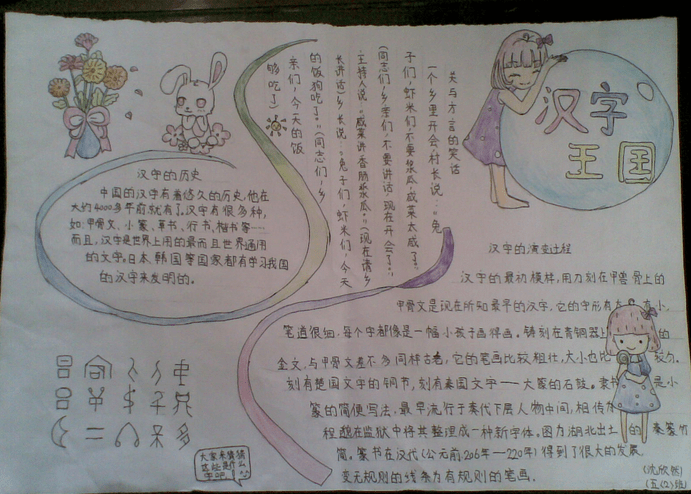 汉字
王国
关与方言的笑话
一个乡里开会,村长说:“兔
子们,虾米们,不要酱瓜,咸菜太咸了。”
(同志们,乡亲们,不要讲话,现在开会了。)
主持人说:“咸菜讲香肠酱瓜。”(现在请乡
长讲话)乡长说:“兔子们,虾米们,今天
的饭狗吃了。”(同志们,乡
亲们,今天的饭
够吃了)
汉字的历史
中国的汉字有着悠久的历史,他在
大约4000多年前就有了,汉字有很多种,
如:甲骨文、小篆、草书、行书、楷书等……
而且,汉字是世界上用的最而且世界通用
的文字,日本,韩国等国家都有学习我国
的汉字来发明的。
汉字的演变过程
汉字的最初模样,用刀刻在甲兽骨上的
甲骨文是现在所知最早的汉字,它的字形有大有小,
笔道很细,每个字都像是一幅小孩子画得画。铸刻在青铜器上的
金文,与甲骨文差不多同样古老,它的笔画比较粗壮,大小也比较匀。
刻有楚国文字的铜节,刻有秦国文字——大篆的石鼓。隶书是小
篆的简便写法,最早流行于秦代下层人物中间,相传
程邈在监狱中将其整理成一种新字体。图为湖北出土的秦篆竹
简。篆书在汉代(公元前206年—220年)得到了很大的发展
变无规则的线条为有规则的笔画。
大家来猜猜
这些是什么
字吧
(沈欣然)
(五(2)班)